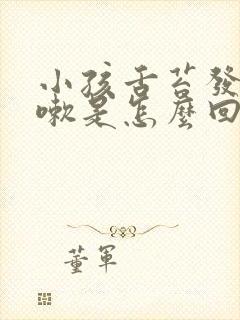 小孩舌苔發
嗽是怎麼回
董軍